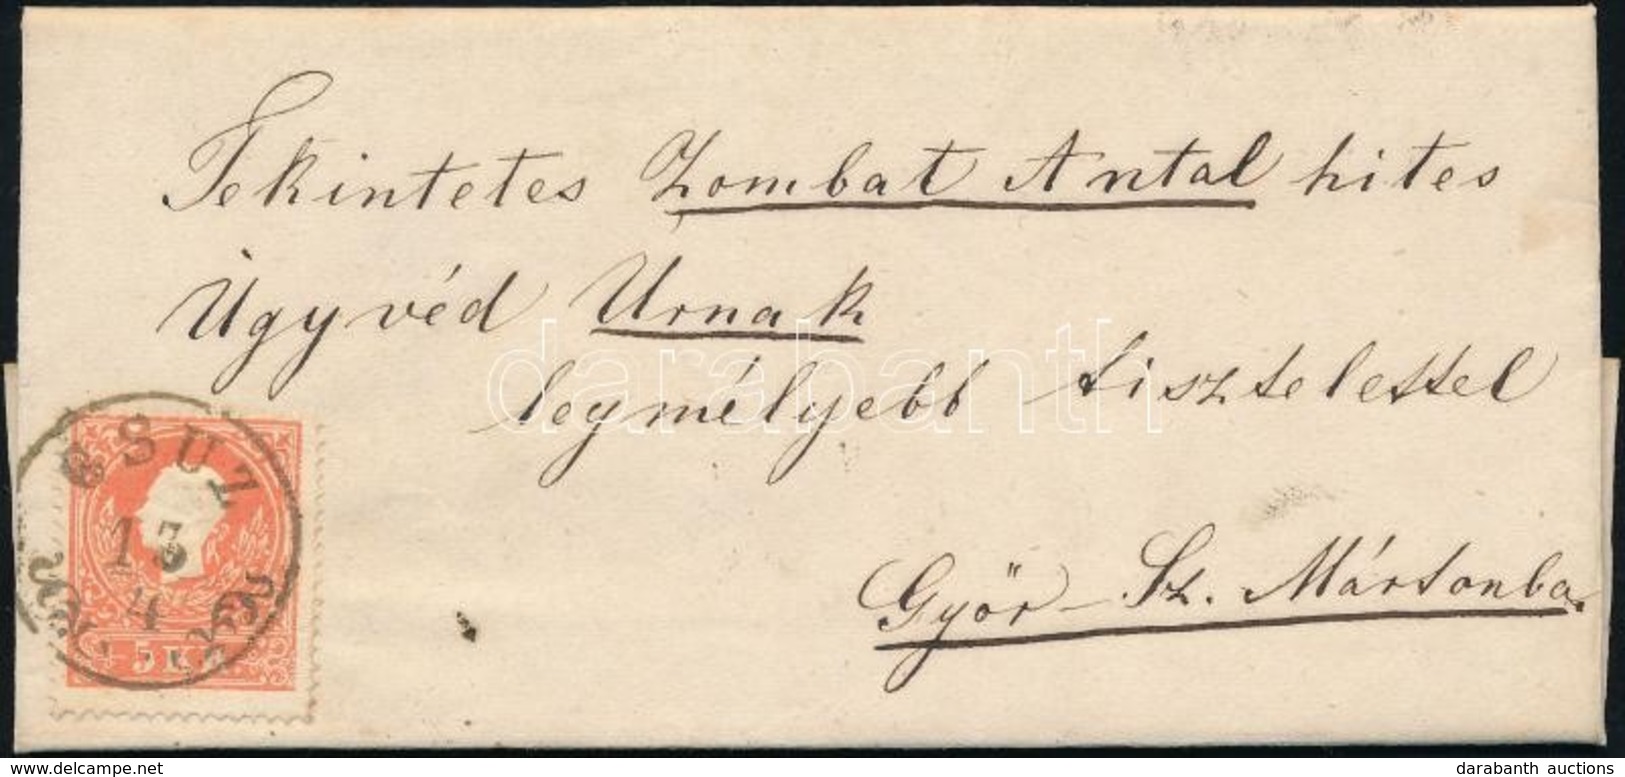 Tekintetes Zombat Antal hites
Ügyvéd Urnak
legmélyebb tisztelettel
Győr - Sz. Mártonba.
CSUZ
13
4
5 Kr
darabanth
www.delcampe.net
darabanth auctions